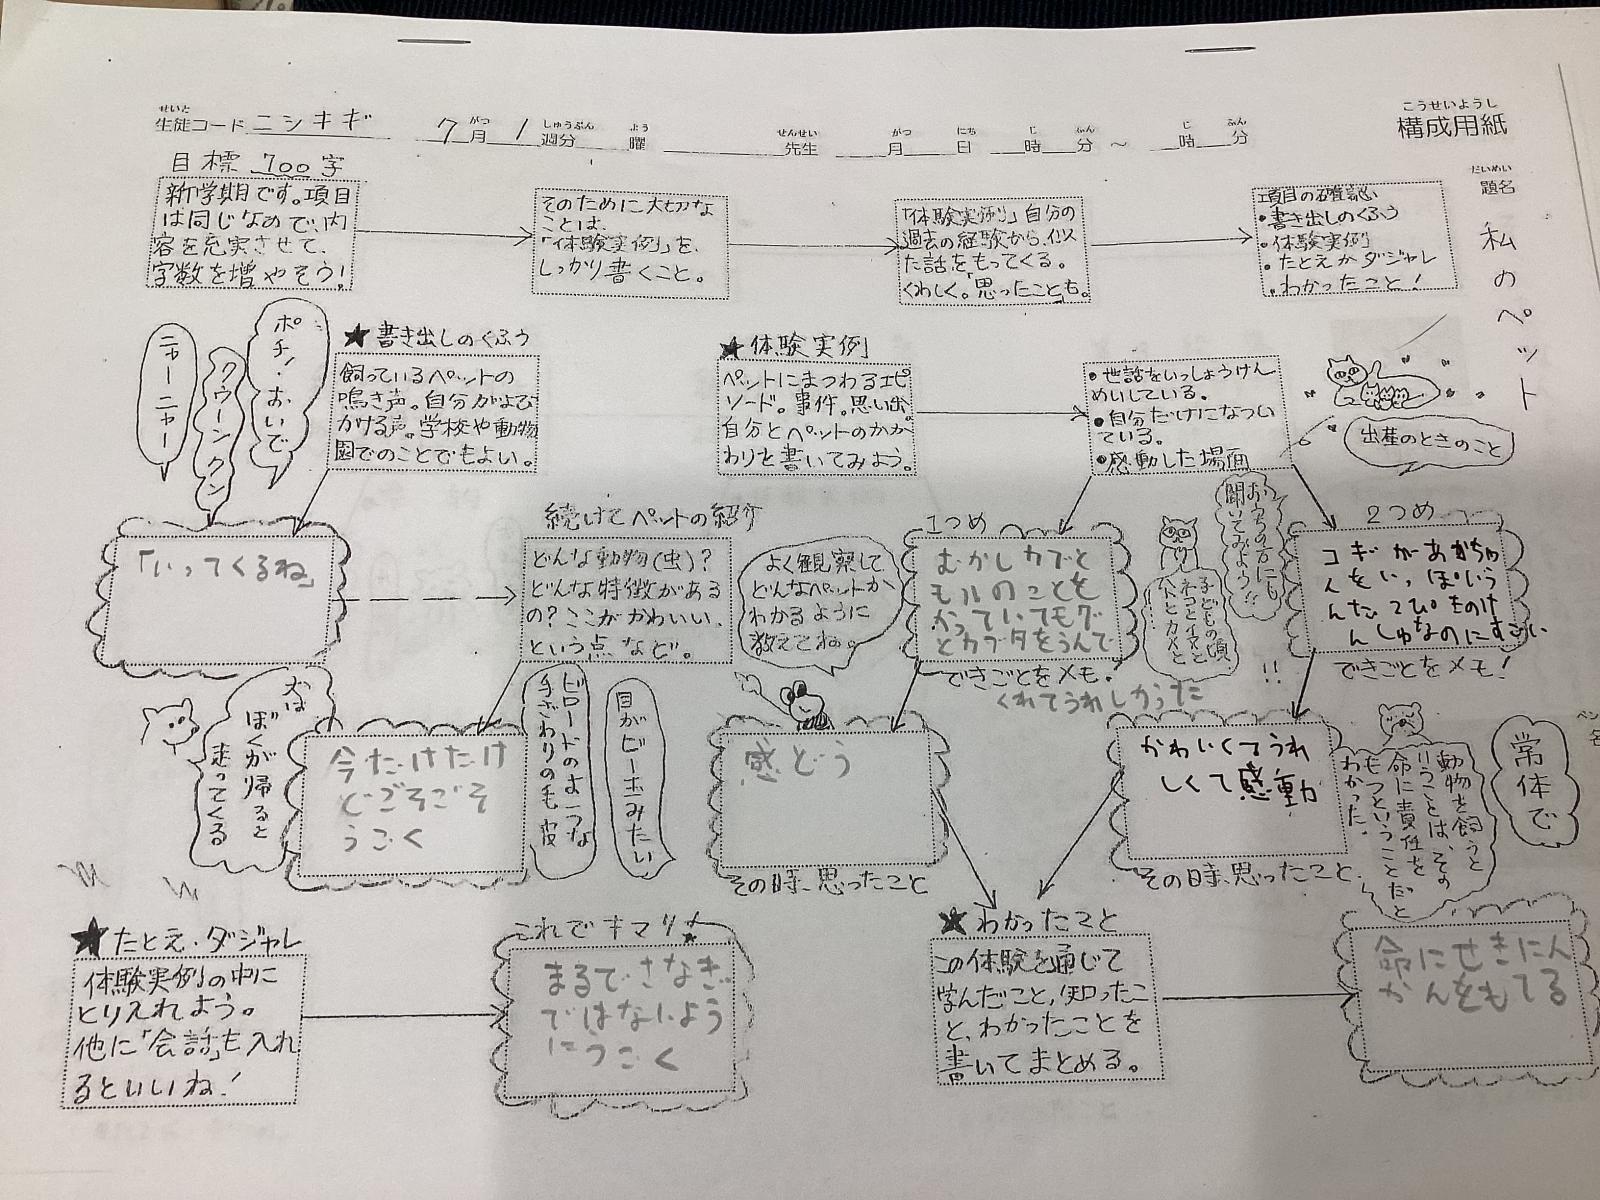 せいと
生徒コード ニシキギ 7月 1週分 曜 先生 月 日 時 分 ～ 時 分
がつ しゅうぶん よう せんせい がつ にち じ ふん じ ふん
こうせいようし
構成用紙
だいめい
題名
私のペット
目標 700字
新学期です。項目
は同じなめで、内
容を充実させて、
字数を増やそう!
そのために大切な
ことは、
「体験実例」を、
しっかり書くこと。
「体験実例」自分の
過去の経験から、似
た話をもってくる。
くわしく。「思ったことも。
項目の確認
・書き出しのくふう
・体験実例
・たとえかダジャレ
・わかったこと!
ポチ!おいで
クウーンクン
ニャーニャー
★書き出しのくふう
飼っているペットの
鳴き声。自分がよび
かける声。学校や動物
園でのことでもよい。
★体験実例
ペットにまつわるエピ
ソード。事件。思い出。
自分とペットのかか
わりを書いてみよう。
・世話をいっしょうけん
めいしている。
・自分だけになつい
ている。
・感動した場面
出産のときのこと
「いってくるね」
続けてペットの紹介
どんな動物(虫)?
どんな特徴がある
の?ここがかわいい、
という点など。
よく観察して
どんなペットか
わかるように
教えてね。
1つめ
むかしカブと
モルのことを
かっていてモグ
とカブタをうんで
できごとをメモ!
くれてうれしかった
お家の方にも
聞いてみよう!!
子どもの頃
ネコとイヌと
ハトとカメと…
!!
2つめ
コギがあかちゃ
んをいっぽいう
んだ
できごとをメモ!
犬は
ぼくが帰ると
走ってくる
今たけたけ
じごそごそ
うごく
ビロードのような
手ざわりの毛皮
目がビー玉みたい
感どう
その時、思ったこと
かわいくてうれ
しくて感動
その時、思ったこと
動物を飼うと
いうことは、その
命に責任を
もつということだと
わかった。
常体で
★たとえ・ダジャレ
体験実例の中に
とりいれよう。
他に「会話」も入れ
るといいね!
これでキマリ!
まるでさなぎ
ではないよう
にうごく
★わかったこと
この体験を通じて
学んだこと、知ったこ
と、わかったことを
書いてまとめる。
命にせきにん
かんをもてる